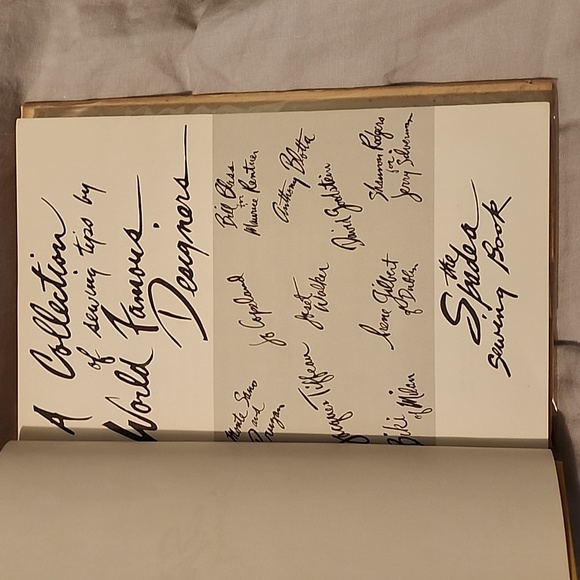 A Collection
of sewing tips by
World Famous
Designers
Monte Sano
and
Pruzan
Jo Copeland
Bill Blass
for
Maurice Rentner
Jacques Tiffeau
Jane Walker
Anthony Blotta
David Goodstein
Biki
of Milan
Irene Gilbert
of Dublin
Shannon Rodgers
for
Jerry Silverman
the
Spadea
Sewing Book